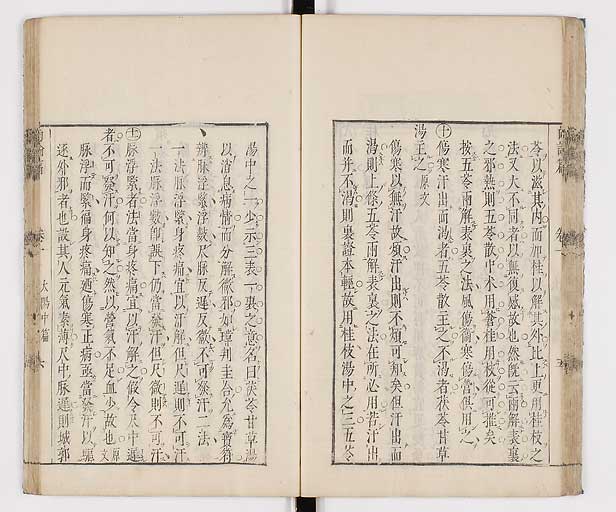 苓以滋其內而加桂以解其外比上更用桂枝之
法又大不同者以無復感故也然既云兩解表裏
之邪熱則五苓散中朮用蒼桂用枝從可推矣
按五苓兩解表裏之法風傷衛寒傷營俱用之
㊉傷寒汗出而渴者五苓散主之不渴者茯苓甘草
湯主之原文
傷寒以無汗故煩汗出則不煩可知矣但汗出而
渴則上條五苓兩解表裏之法在所必用若汗出
而并不渴則裏證本輕故用桂枝湯中之三五苓
湯中之一少示三表一裏之意名曰茯苓甘草湯
以消息病情而分解微邪如璋判圭合允爲寶符
辨脉浮緊浮數尺脉反遲反微不可發汗二法
一法脉浮緊身疼痛宜以汗解但尺遲則不可汗
一法脉浮數卽誤下仍當發汗但尺微則不可汗
脉浮緊者法當身疼痛宜以汗解之假令尺中遲
者不可發汗何以知之然以營氣不足血少故也原文
脉浮而緊徧身疼痛廼傷寒正病亟當發汗以驅
逐外邪者也設其人元氣素薄尺中脉遲則城郭
尚論篇
卷
太陽中篇
六